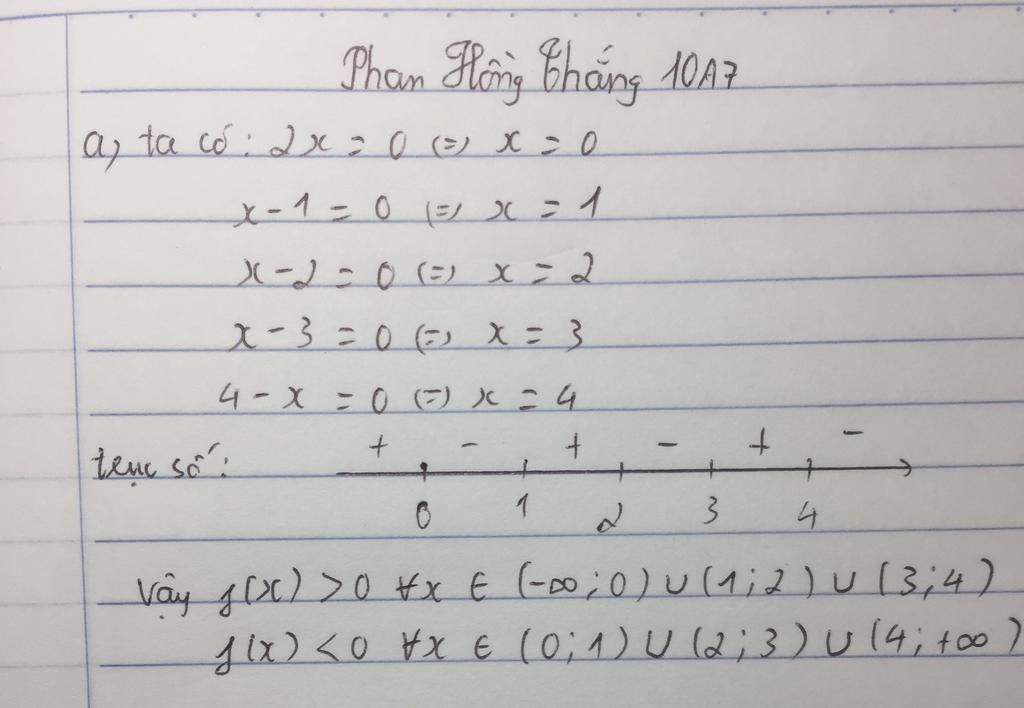 Phan Hồng Thắng 10A7
a, ta có: 2x = 0 (=) x = 0
x - 1 = 0 (=) x = 1
x - 2 = 0 (=) x = 2
x - 3 = 0 (=) x = 3
4 - x = 0 (=) x = 4
+ - + - + -
trục số:
0 1 2 3 4
Vậy f(x) > 0 ∀x ∈ (-∞; 0) ∪ (1; 2) ∪ (3; 4)
f(x) < 0 ∀x ∈ (0; 1) ∪ (2; 3) ∪ (4; +∞)